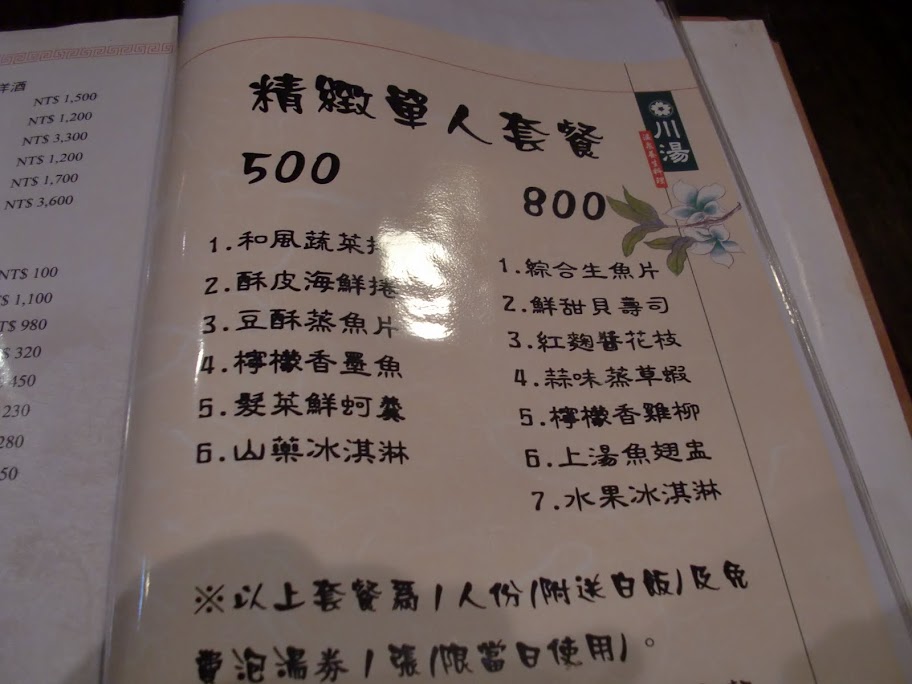 洋酒
NT$ 1,500
NT$ 1,200
NT$ 3,300
NT$ 1,200
NT$ 1,700
NT$ 3,600
NT$ 100
NT$ 1,100
NT$ 980
320
450
230
280
50
精緻單人套餐
川湯
500
1.和風蔬菜
2.酥皮海鮮捲
3.豆酥蒸魚片
4.檸檬香墨魚
5.髮菜鮮蚵羹
6.山藥冰淇淋
800
1.綜合生魚片
2.鮮甜貝壽司
3.紅麴醬花枝
4.蒜味蒸草蝦
5.檸檬香雞柳
6.上湯魚翅盅
7.水果冰淇淋
※以上套餐為1人份(附送白飯)及免
費泡湯券1張(限當日使用)。